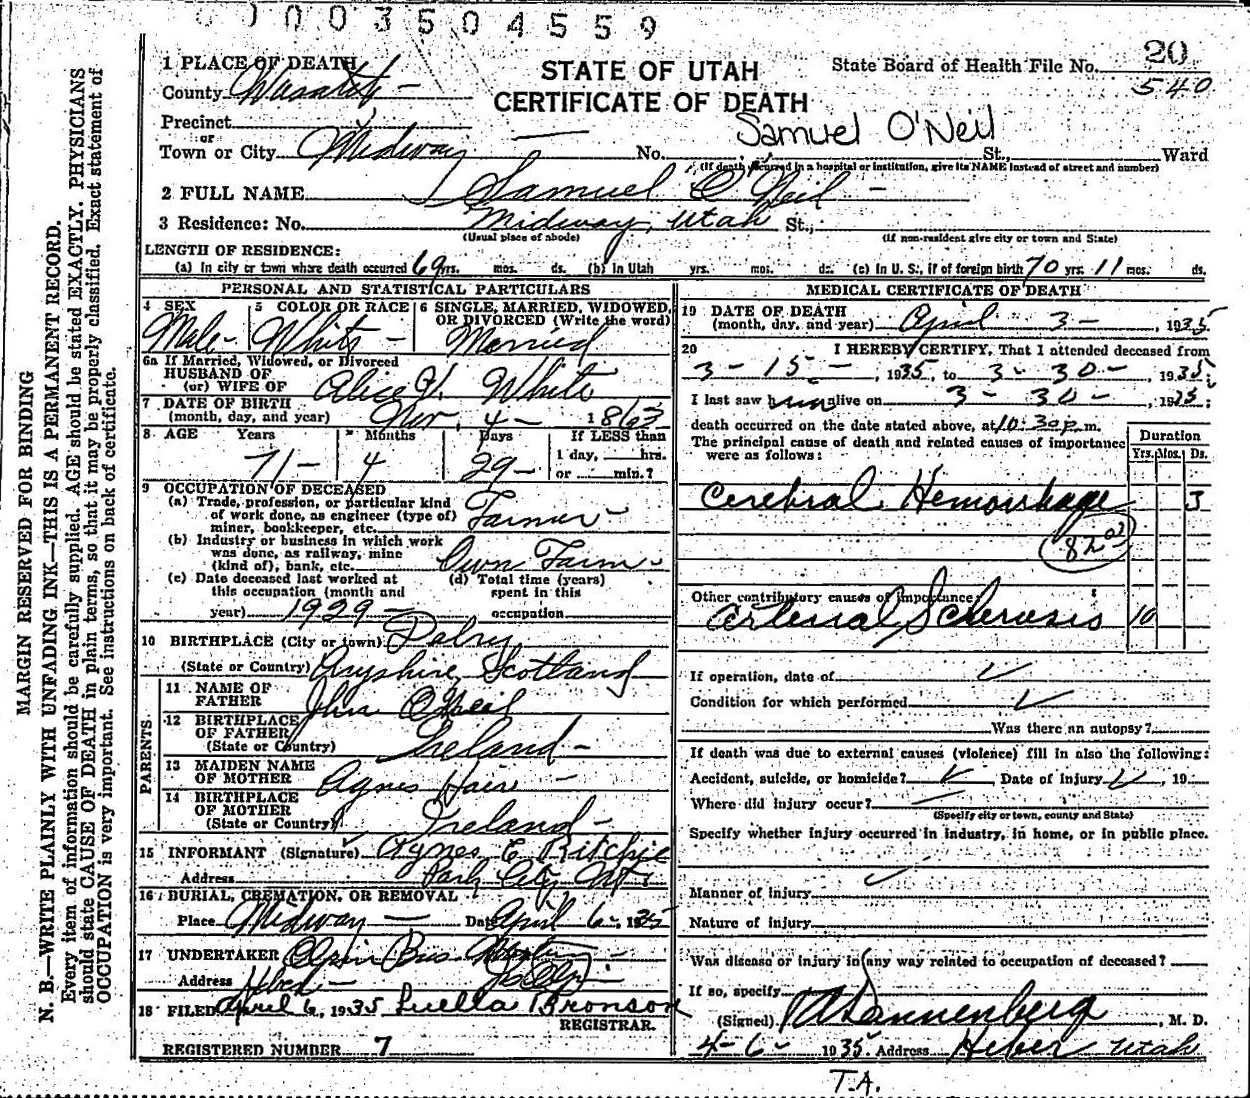 0003504559
MARGIN RESERVED FOR BINDING
N. B.—WRITE PLAINLY WITH UNFADING INK—THIS IS A PERMANENT RECORD.
Every item of information should be carefully supplied. AGE should be stated EXACTLY. PHYSICIANS
should state CAUSE OF DEATH in plain terms, so that it may be properly classified. Exact statement of
OCCUPATION is very important. See instructions on back of certificate.
STATE OF UTAH
CERTIFICATE OF DEATH
State Board of Health File No. 20
540
1 PLACE OF DEATH
County Wasatch
Precinct
or
Town or City Midway No. St., Ward
Samuel O'Neil
(If death occurred in a hospital or institution, give its NAME instead of street and number)
2 FULL NAME Samuel O'Neil
3 Residence: No. Midway, Utah St.,
(Usual place of abode) (If non-resident give city or town and State)
LENGTH OF RESIDENCE:
(a) In city or town where death occurred 69 yrs. mos. ds. (b) In Utah yrs. mos. ds. (c) In U. S., if of foreign birth 70 yrs. 11 mos. ds.
PERSONAL AND STATISTICAL PARTICULARS
4 SEX 5 COLOR OR RACE 6 SINGLE, MARRIED, WIDOWED, OR DIVORCED (Write the word)
Male White Married
6a If Married, Widowed, or Divorced
HUSBAND OF
(or) WIFE OF Alice White
7 DATE OF BIRTH
(month, day, and year) Nov. 4 - 1863
8 AGE Years Months Days If LESS than
71 4 29 1 day, hrs.
or min.?
9 OCCUPATION OF DECEASED
(a) Trade, profession, or particular kind
of work done, as engineer (type of)
miner, bookkeeper, etc. Farmer
(b) Industry or business in which work
was done, as railway, mine
(kind of), bank, etc. Own Farm
(c) Date deceased last worked at
this occupation (month and
year) 1929
(d) Total time (years)
spent in this
occupation
10 BIRTHPLACE (City or town) Dalry
(State or Country) Aryshire, Scotland
PARENTS
11 NAME OF
FATHER John O'Neil
12 BIRTHPLACE
OF FATHER
(State or Country) Ireland
13 MAIDEN NAME
OF MOTHER Agnes Hair
14 BIRTHPLACE
OF MOTHER
(State or Country) Ireland
15 INFORMANT (Signature) Agnes E Ritchie
Address Park City Ut.
16 BURIAL, CREMATION, OR REMOVAL
Place Midway Date April 6, 1935
17 UNDERTAKER Olpin Bros
Address Heber
18 FILED April 6, 1935 Luella Bronson
REGISTRAR.
REGISTERED NUMBER 7
MEDICAL CERTIFICATE OF DEATH
19 DATE OF DEATH
(month, day, and year) April 3 - , 1935
20 I HEREBY CERTIFY, That I attended deceased from
3 - 15 - , 1935, to 3 - 30 - , 1935;
I last saw him alive on 3 - 30 - , 1935;
death occurred on the date stated above, at 10:30 p.m.
The principal cause of death and related causes of importance
were as follows:
Duration
Yrs. Mos. Ds.
Cerebral Hemorrhage 3
82
Other contributory causes of importance:
Arterial Sclerosis 10
If operation, date of
Condition for which performed
Was there an autopsy?
If death was due to external causes (violence) fill in also the following:
Accident, suicide, or homicide? Date of injury , 19
Where did injury occur?
(Specify city or town, county and State)
Specify whether injury occurred in industry, in home, or in public place.
Manner of injury
Nature of injury
Was disease or injury in any way related to occupation of deceased?
If so, specify
(Signed) Dannenberg, M. D.
4-6- 1935 Address Heber Utah
T.A.